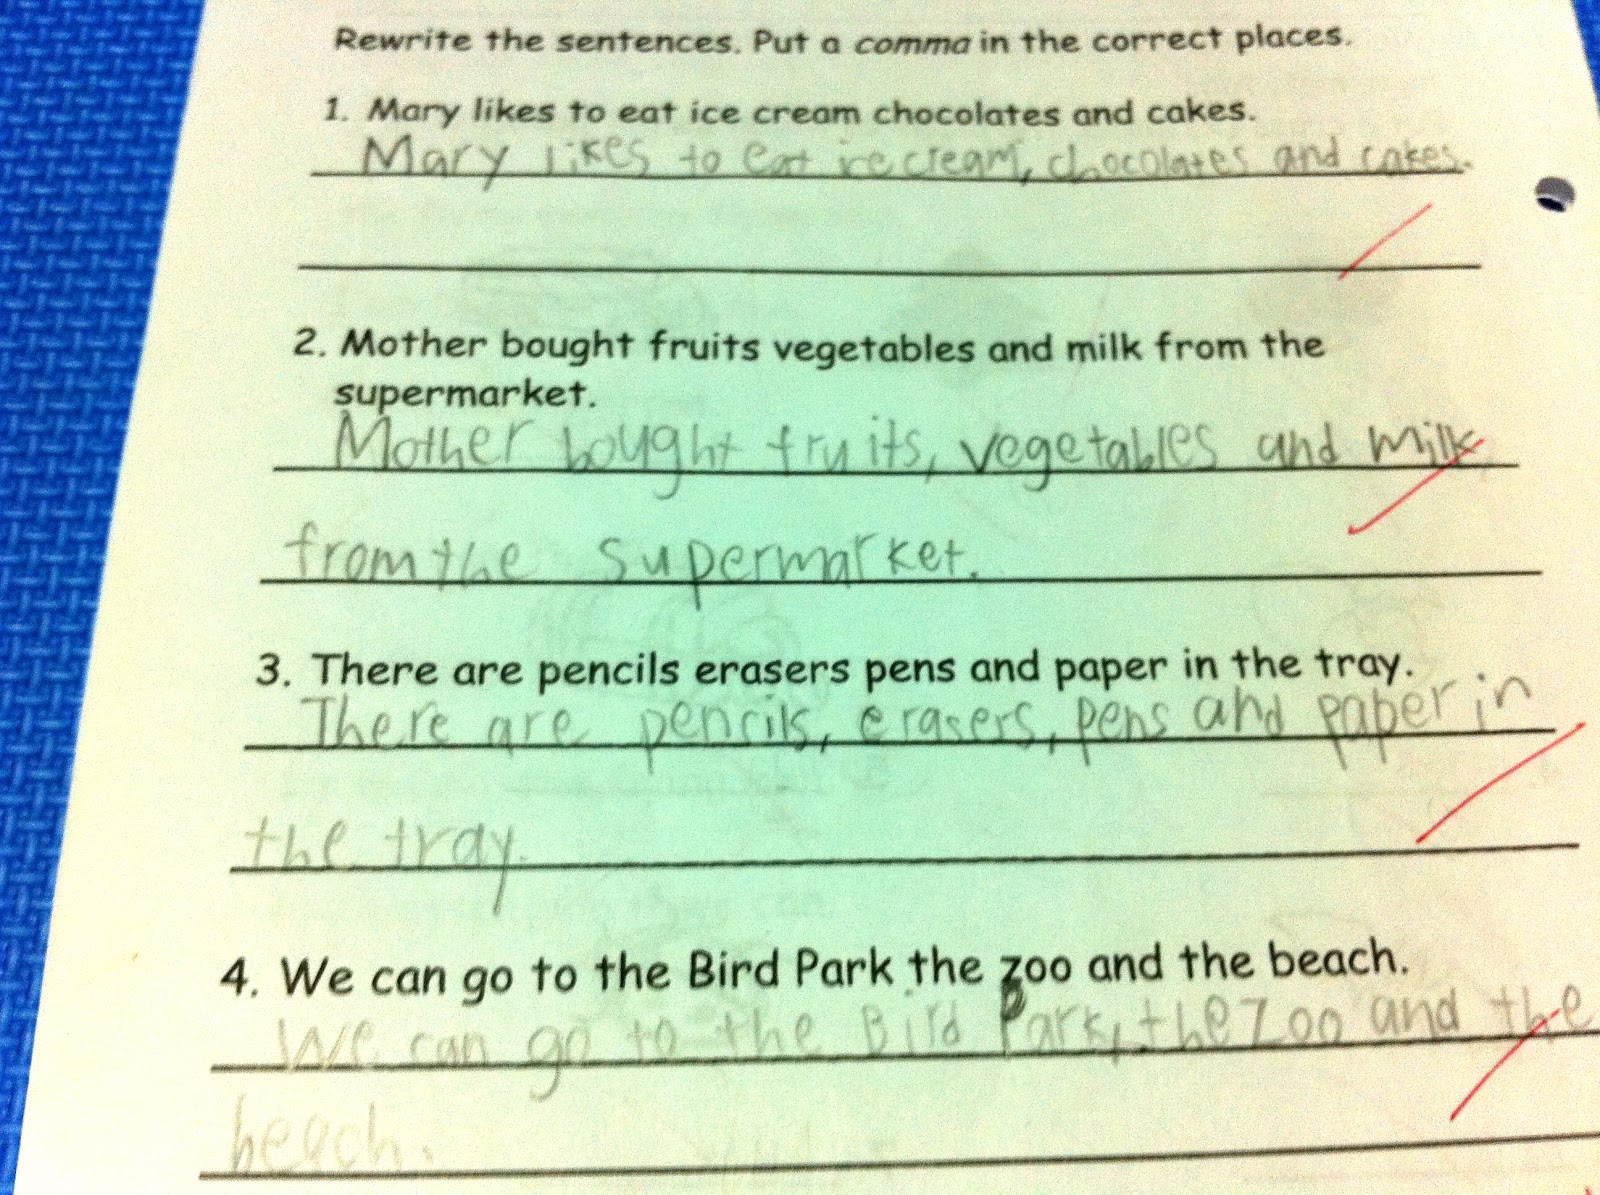 Rewrite the sentences. Put a comma in the correct places.
1. Mary likes to eat ice cream chocolates and cakes.
Mary likes to eat ice cream, chocolates and cakes.
2. Mother bought fruits vegetables and milk from the
supermarket.
Mother bought fruits, vegetables and milk
from the supermarket.
3. There are pencils erasers pens and paper in the tray.
There are pencils, erasers, pens and paper in
the tray.
4. We can go to the Bird Park the zoo and the beach.
We can go to the Bird Park, the Zoo and the
beach.